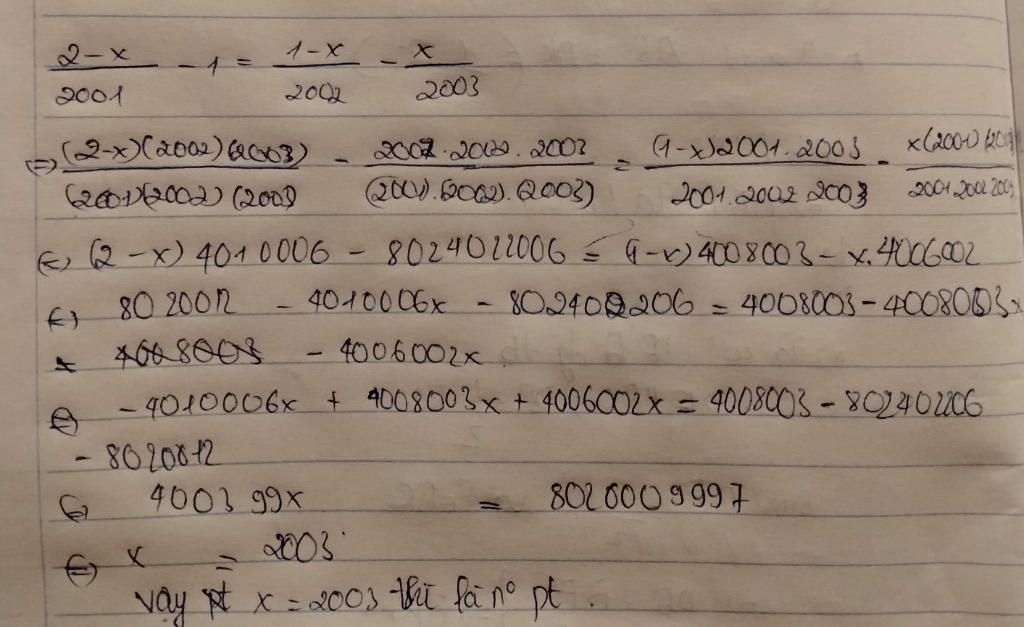 2-x/2001 - 1 = 1-x/2002 - x/2003
⇔ (2-x)(2002)(2003)/(2001)(2002)(2003) - 2001.2002.2003/(2001).(2002).(2003) = (1-x)2001.2003/2001.2002.2003 - x(2001)(2002)/2001.2002.2003
⇔ (2-x)4010006 - 8024022006 = (1-x)4008003 - x.4006002
⇔ 8020012 - 4010006x - 802402206 = 4008003 - 4008003x
- 4006002x
⇔ -4010006x + 4008003x + 4006002x = 4008003 - 802402206
- 8020012
⇔ 400399x = 8020009997
⇔ x = 2003
vậy pt x = 2003 thì là n° pt.